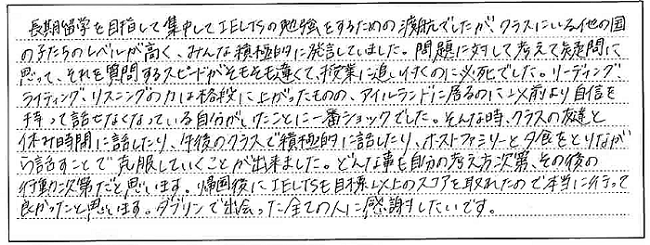 長期留学を目指して集中してIELTSの勉強をするための渡航でしたが、クラスにいる他の国
の子たちのレベルが高く、みんな積極的に発言していました。問題に対して考えて疑問に
思って、それを質問するスピードがそもそも違くて、授業に追い付くのに必死でした。リーディング、
ライティング、リスニングの力は格段に上がったものの、アイルランドに居るのに以前より自信を
持って話せなくなっている自分がいたことに一番ショックでした。そんな時、クラスの友達と
休み時間に話したり、午後のクラスで積極的に話したり、ホストファミリーと夕食をとりなが
ら話すことで克服していくことが出来ました。どんな事も自分の考え方次第、その後の
行動次第だと思います。帰国後にIELTSも目標以上のスコアを取れたので本当に行って
良かったと思います。ダブリンで出会った全ての人に感謝したいです。